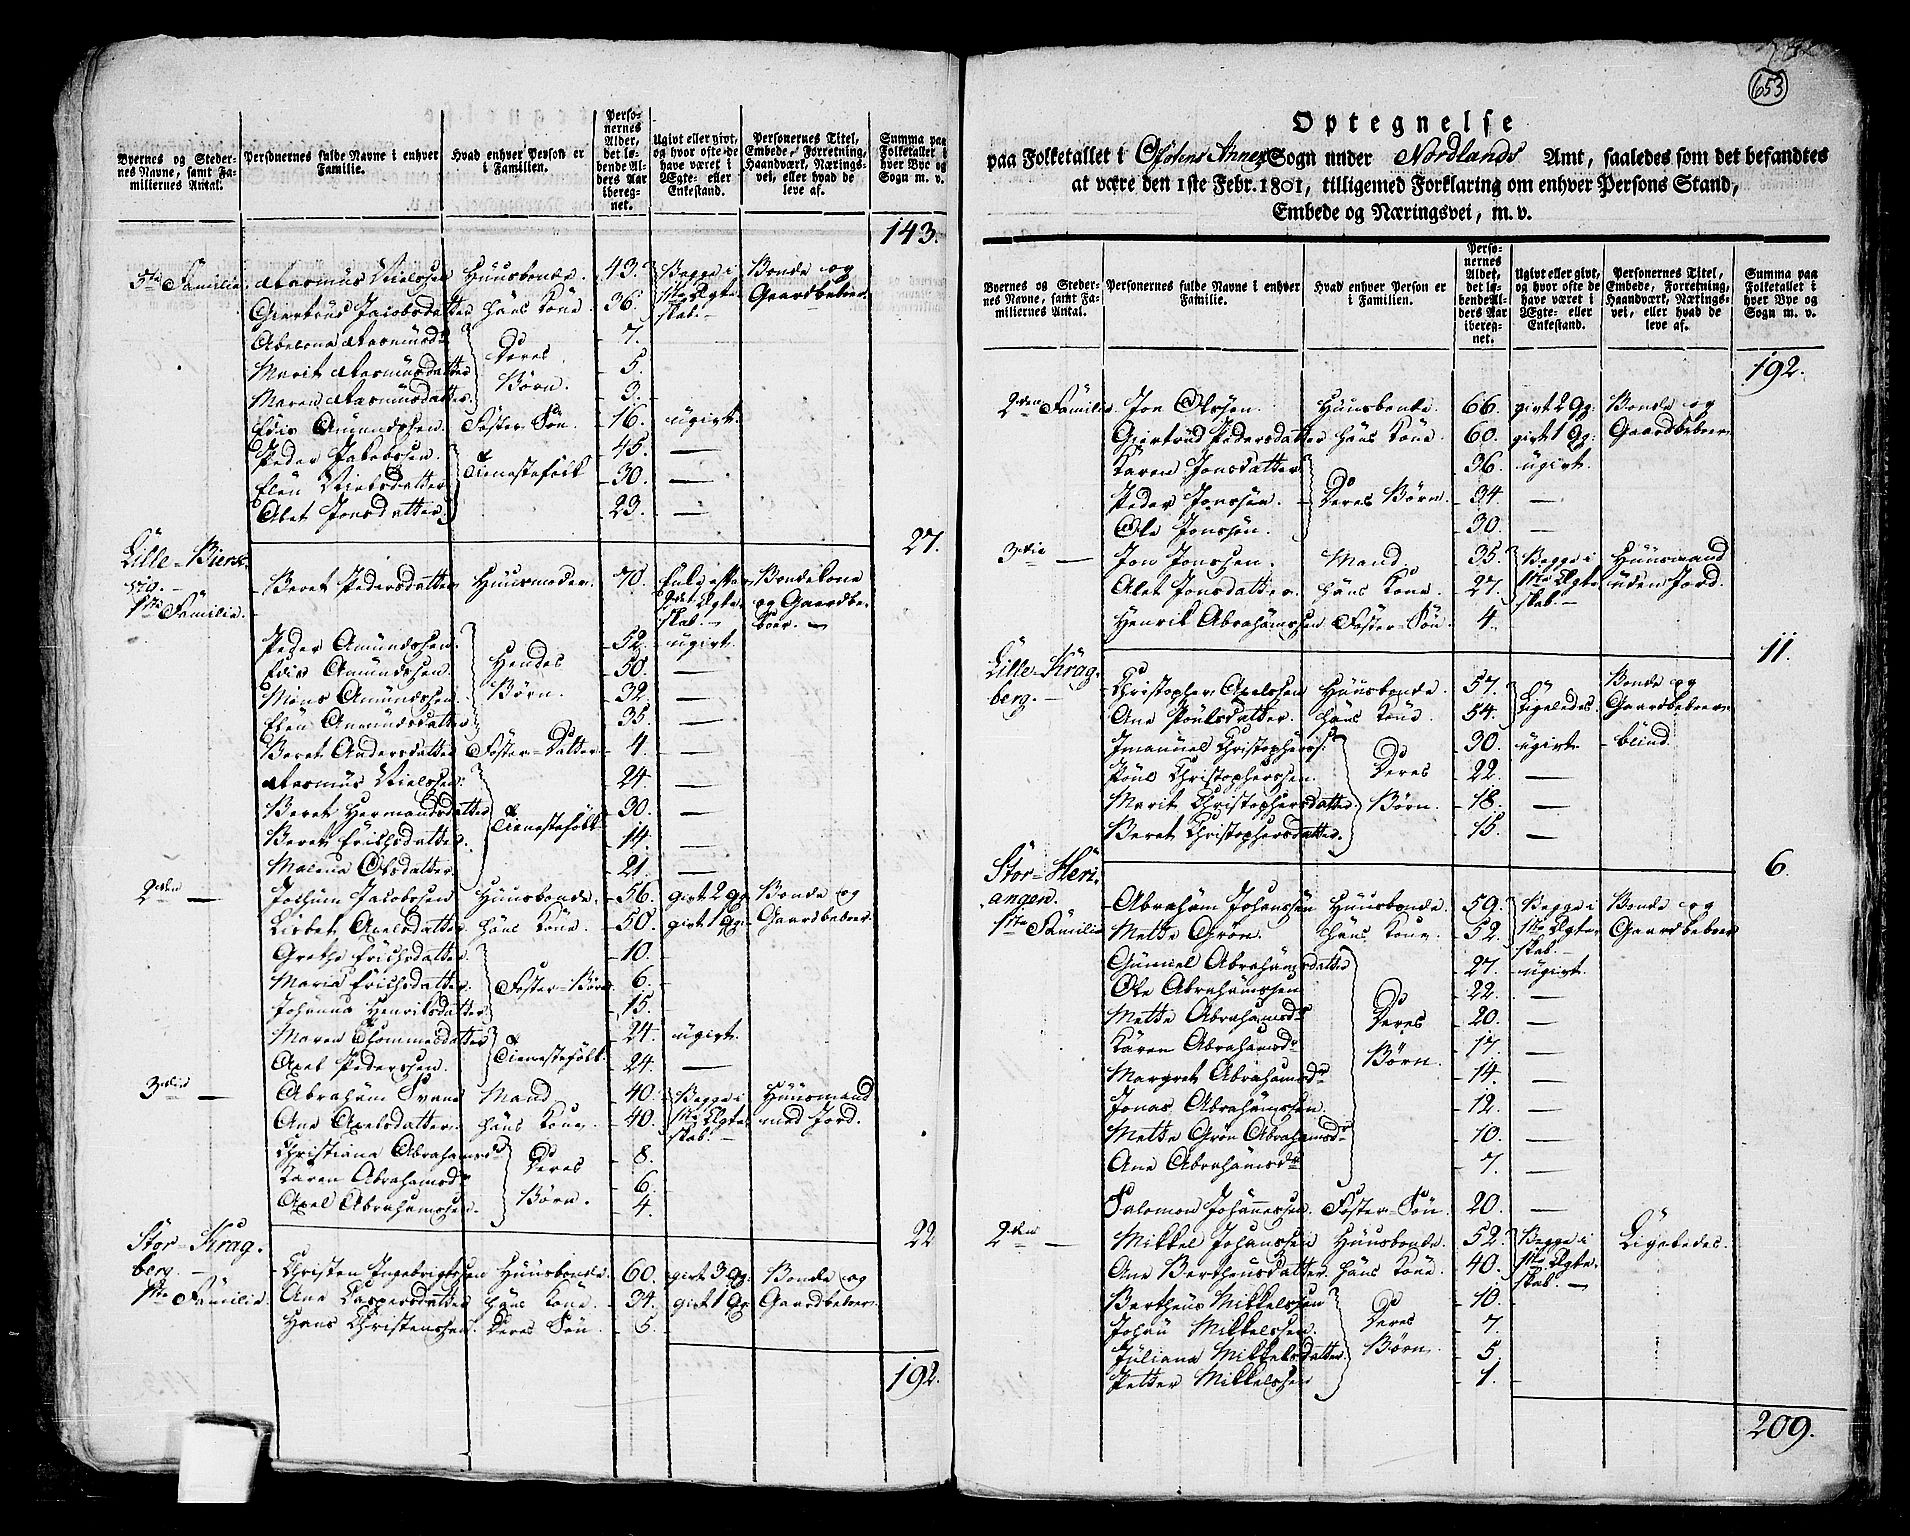 Byernes og Stedernes Navne, samt Familiernes Antal. | Personernes fulde Navne i enhver Familie. | Hvad enhver Person er i Familien. | Personernes Alder, det løbende Alders Aar iberegnet. | Ugivt eller givt, og hvor ofte de have været i Ægte- eller Enkestand. | Personernes Titel, Embede, Forretning, Haandværk, Næringsvei, eller hvad de leve af. | Summa paa Folketallet i hver Bye og Sogn m. v.
143.
5te Familie. Rasmus Nielssen Huusbonde. 43. Begge i 1ste Ægteskab. Bonde og Gaardbeboer
Giertrus Jacobsdatter hans Kone 36.
Abelona Rasmusdr Deres Børn. 7.
Marit Rasmusdatter 5.
Maren Rasmusdatter. 3.
Edis Amundssen Foster-Søn. 16. ugivt.
Peder Jakobssen. Tienestefolk 45. —
Elen Nielsdatter 30. —
Alet Jonsdatter. 23. —
27.
Lille-Biervig.
1ste Familie. Beret Pedersdatter Huusmoder. 70. Enke efter 2det Ægteskab. Bondekone og Gaardbeboer.
Peder Amundssen. Hendes Børn. 52. ugivt.
Edis Amundssen. 50. —
Mons Amundssen. 32. —
Elen Amundsdatter 35. —
Beret Andersdatter Foster-Datter 4. —
Rasmus Nielssen. Tienestefolk 24. —
Beret Hermansdatter 30. —
Beret Erichsdatter 14. —
Malena Olsdatter 21. —
2den — Johan Jacobssen Huusbonde. 56. givt 2 Gg: Bonde og Gaardbeboer
Lisbet Axelsdatter hans Kone. 50. givt 1 Gg:
Grethe Erichsdatter Foster-Børn 10.
Maria Erichsdatter. 6.
Johanna Henriksdatter 15.
Maren Thommesdatter Tienestefolk. 24. ugivt.
Axel Pederssen. 24. —
3die — Abraham Svane Mand 40. Begge i 1ste Ægteskab. Huusmand med Jord.
Ane Axelsdatter. hans Kone. 40.
Christiana Abrahamsdr Deres Børn. 8.
Karen Abrahamsdr 6.
Axel Abrahamssen. 4.
22
Stor-Kragberg. —
1ste Familie. Christen Ingebrigtssen Huusbonde. 60. givt 3 Gg: Bonde og Gaardbeboer
Ane Caspersdatter hans Kone 34. givt 1 Gg:
Hans Christenssen. Deres Søn. 5.
192.
653
Optegnelse
paa Folketallet i Ofotens Annex Sogn under Nordlands Amt, saaledes som det befandtes
at være den 1ste Febr. 1801, tilligemed Forklaring om enhver Persons Stand,
Embede og Næringsvei, m. v.
Byernes og Stedernes Navne, samt Familiernes Antal. | Personernes fulde Navne i enhver Familie. | Hvad enhver Person er i Familien. | Personernes Alder, det løbende Alders Aar iberegnet. | Ugivt eller givt, og hvor ofte de have været i Ægte- eller Enkestand. | Personernes Titel, Embede, Forretning, Haandværk, Næringsvei, eller hvad de leve af. | Summa paa Folketallet i hver Bye og Sogn m. v.
192.
2den Familie. Jon Olssen. Huusbonde. 66. givt 2 Gg: Bonde og Gaardbeboer
Giertrud Pedersdatter hans Kone 60. givt 1 Gg:
Karen Jonsdatter Deres Børn 36. ugivt.
Peder Jonssen. 34. —
Ole Jonssen. 30. —
3die — Jon Jonssen. Mand 35. Begge i 1ste Ægteskab. — Huusmand uden Jord.
Alet Jonsdatter. hans Kone. 27.
Henrik Abrahamssen Foster-Søn 4.
11.
Lille-Kragberg. — Christopher Axelssen Huusbonde. 57. Ligeledes Bonde og Gaardbeboer
Ane Poulsdatter. hans Kone. 54.
Imanuel Christopherss: Deres Børn. 30. ugivt. blind.
Poul Christopherssen. 22. —
Marit Christophersdatter. 18. —
Beret Christophersdatter. 15. —
6.
Stor-Heriangen.
1ste Familie Abraham Johanssen Huusbonde. 59. Begge i 1ste Ægteskab. Bonde og Gaardbeboer
Mette Grøn. hans Kone. 52.
Gunniel Abrahamsdatter Deres Børn. 27. ugivt.
Ole Abrahamssen 22. —
Mette Abrahamsdr 20. —
Karen Abrahamsdr 17. —
Margret Abrahamsdr 14. —
Jonas Abrahamssen. 12. —
Mette Grøn Abrahamsdr 10. —
Ane Abrahamsdr 7. —
Salomon Johannessen Foster-Søn. 20. —
2den — Mikkel Johanssen Huusbonde. 52. Begge i 1ste Ægteskab. — Ligeledes.
Ane Bertheusdatter hans Kone. 40.
Bertheus Mikkelssen Deres Børn. 10.
Johan Mikkelssen. 7.
Juliana Mikkelsdatter 5.
Petter Mikkelssen 1.
209.